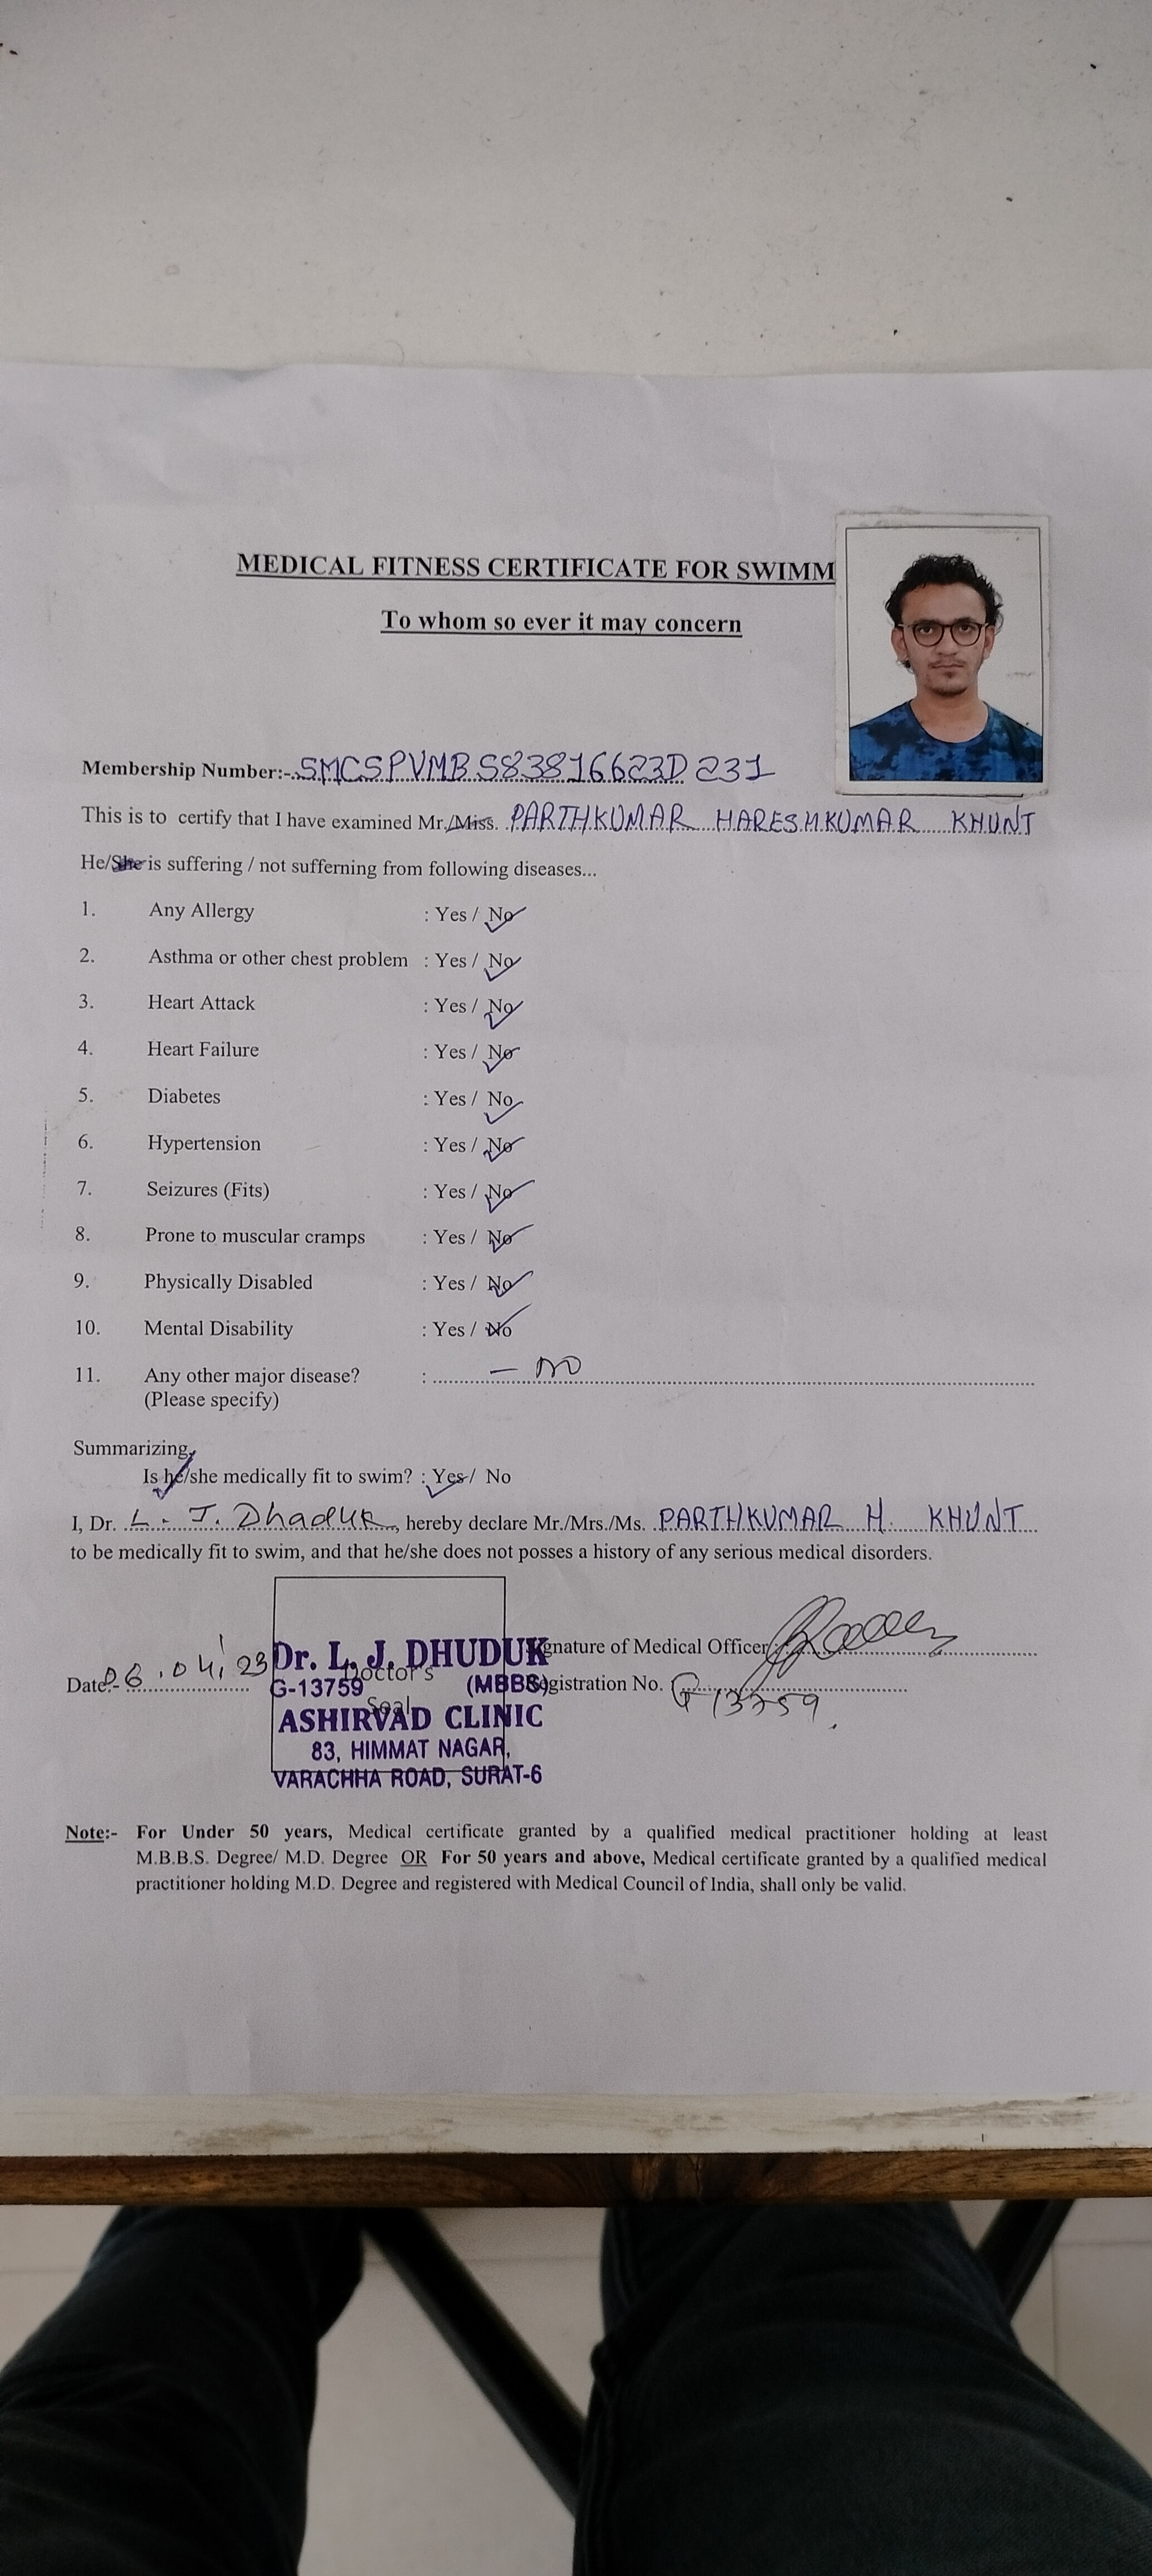 MEDICAL FITNESS CERTIFICATE FOR SWIMM
To whom so ever it may concern
Membership Number:- SMCSPVMBS83816623D231
This is to certify that I have examined Mr./Miss. PARTHKUMAR HARESHKUMAR KHUNT
He/She is suffering / not sufferning from following diseases...
1. Any Allergy : Yes / No
2. Asthma or other chest problem : Yes / No
3. Heart Attack : Yes / No
4. Heart Failure : Yes / No
5. Diabetes : Yes / No
6. Hypertension : Yes / No
7. Seizures (Fits) : Yes / No
8. Prone to muscular cramps : Yes / No
9. Physically Disabled : Yes / No
10. Mental Disability : Yes / No
11. Any other major disease? : – no
(Please specify)
Summarizing,
Is he/she medically fit to swim? : Yes / No
I, Dr. L. J. Dhaduk, hereby declare Mr./Mrs./Ms. PARTHKUMAR H. KHUNT
to be medically fit to swim, and that he/she does not posses a history of any serious medical disorders.
Signature of Medical Officer:
Date:- 06.04.23
Registration No. G 13759
Doctor's
Seal
Dr. L. J. DHUDUK
G-13759 (MBBS)
ASHIRVAD CLINIC
83, HIMMAT NAGAR,
VARACHHA ROAD, SURAT-6
Note:- For Under 50 years, Medical certificate granted by a qualified medical practitioner holding at least
M.B.B.S. Degree/ M.D. Degree OR For 50 years and above, Medical certificate granted by a qualified medical
practitioner holding M.D. Degree and registered with Medical Council of India, shall only be valid.